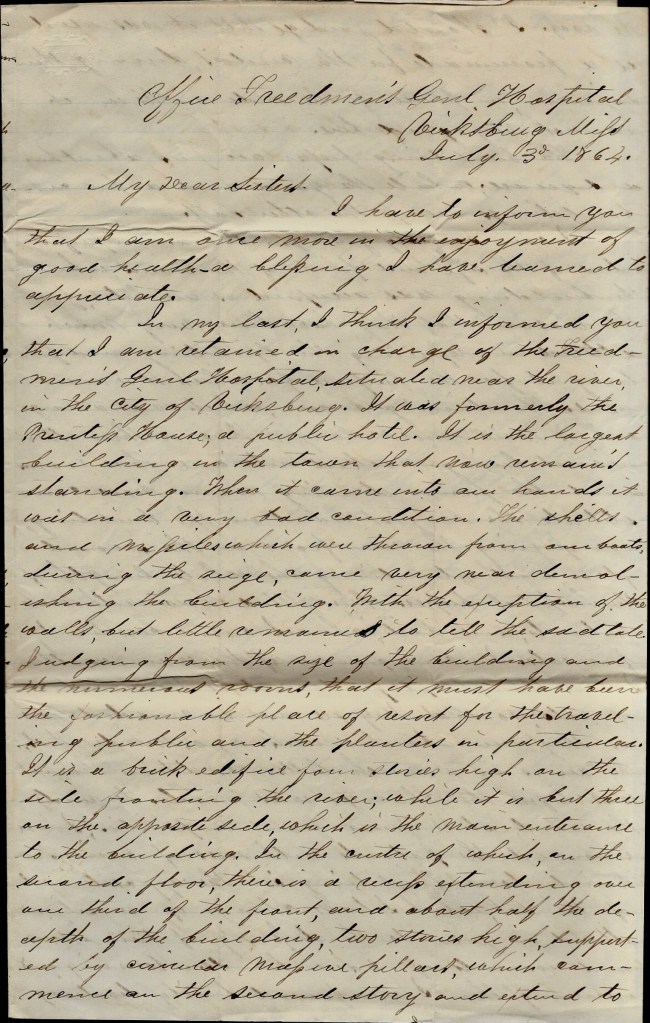 Office Freedmen's Genl Hospital
Vicksburg Miss
July. 3d 1864.
My Dear Sister
I have to inform you
that I am once more in the enjoyment of
good health - a blessing I have learned to
appriciate.
In my last, I think I informed you
that I am retained in charge of the Freed-
men's Genl Hospital, situated near the river,
in the City of Vicksburg. It was formerly the
Prentiss House; a public hotel. It is the largest
building in the town that now remains
standing. When it came into our hands it
was in a very bad condition. The shells
and missiles which were thrown from our boats,
during the seige, came very near demol-
ishing the building. With the exception of the
walls, but little remained to tell the sad tale
Judging from the size of the building and
the numerous rooms, that it must have been
the fashionable place of resort for the travel-
ing public and the planters in particular.
It is a brick edifice four stories high on the
side fronting the river; while it is but three
on the opposite side, which is the main entrance
to the building. In the centre of which, on the
second floor, there is a recess extending over
one third of the front, and about half the de-
apth of the building, two stories high, support-
ed by circular massive pillars, which com-
mence on the second story and extend to